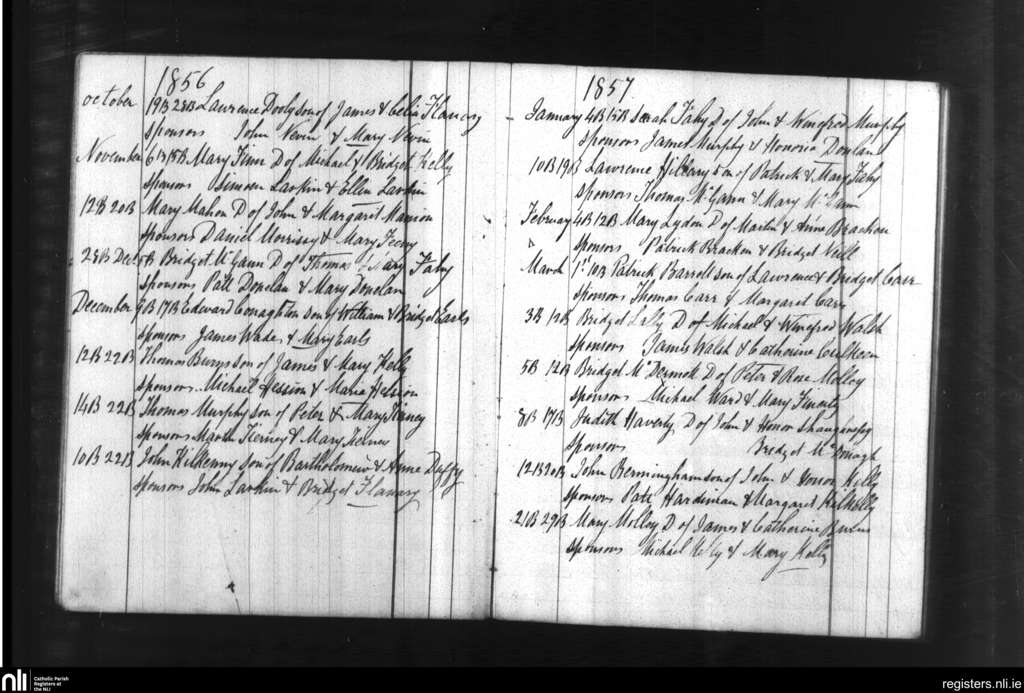 1856
October 19B 28B Lawrence Dooly son of James & Celia Flancry
Sponsors John Nevin & Mary Nevin
November 6B 15B Mary Finn D of Michael & Bridget Kelly
Sponsors Larkin & Ellen Larkin
12B 20B Mary Mahon D of John & Margaret Mannion
Sponsors Daniel Morrisey & Mary Feeny
28B Dec 5B Bridget McGann D of Thomas Mary Fahy
Sponsors Patt Donelan & Mary Donelan
December 9B 17B Edward Conaghton son of William & Bridget Earls
Sponsors James Wade & Mary Earls
12B 22B Thomas Burns son of James & Mary Kelly
Sponsors Michael Hession & Maria Hession
14B 22B Thomas Murphy son of Peter & Mary Tierney
Sponsors Martin Tierney & Mary Tierney
10B 22B John Kilkenny son of Bartholomew & Anne Duffy
Sponsors John Larkin & Bridget Flanary
1857
January 4B 15B Sarah Fahy D of John & Winefred Murphy
Sponsors James Murphy & Honoria Donlan
10B 19B Lawrence Hillary son of Patrick & Mary Fahy
Sponsors Thomas McGann & Mary McGann
Februay 4B 12B Mary Lydon D of Martin & Anne Bracken
Sponsors Patrick Bracken & Bridget Neill
March 1st 10B Patrick Barrett son of Lawrence & Bridget Carr
Sponsors Thomas Carr & Margaret Carr
3B 12B Bridget Lally D of Michael & Winefred Walsh
Sponsors James Walsh & Catherine Culkeen
5B 12B Bridget McDermott D of Peter & Rose Molloy
Sponsors Michael Ward & Mary Finerty
8B 17B Judith Haverty D of John & Honor
Sponsors Bridget McDonagh
12B 20B John Bermingham son of John & Honor Kelly
Sponsors Patt Hardiman & Margaret Kilkelly
21B 29B Mary Molloy D of James & Catherine Burns
Sponsors Michael Kelly & Mary Kelly
nli Catholic Parish
Registers at
the NLI
registers.nli.ie